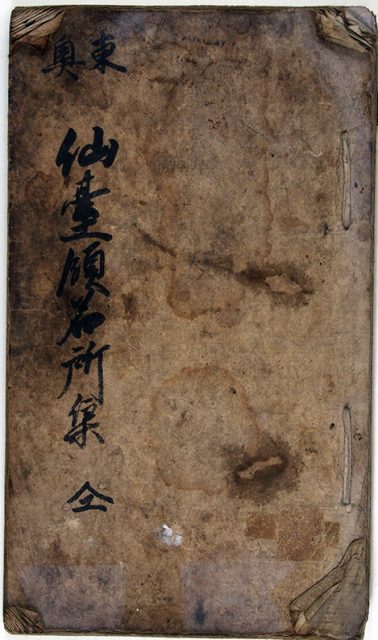 東奥
仙臺領名所集 全